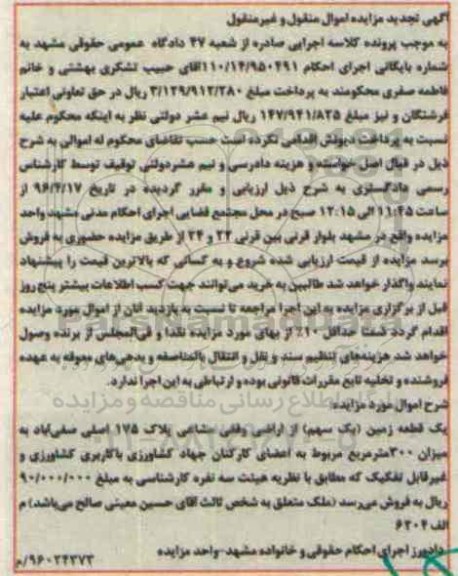 آگهی تجدید مزایده اموال منقول و غیرمنقول
به موجب پرونده کلاسه اجرایی صادره از شعبه ۴۷ دادگاه عمومی حقوقی مشهد به
شماره بایگانی اجرای احکام ۱۱۰/۱۴/۹۵۰۴۹۱آقای حبیب تشکری بهشتی و خانم
فاطمه صفری محکومند به پرداخت مبلغ ۳/۱۲۹/۹۱۲/۲۸۰ ریال در حق تعاونی اعتبار
فرشتگان و نیز مبلغ ۱۴۷/۹۴۱/۸۲۵ ریال نیم عشر دولتی نظر به اینکه محکوم علیه
نسبت به پرداخت دیونش اقدامی نکرده است حسب تقاضای محکوم له اموالی به شرح
ذیل در قبال اصل خواسته و هزینه دادرسی و نیم عشردولتی توقیف توسط کارشناس
رسمی دادگستری به شرح ذیل ارزیابی و مقرر گردیده در تاریخ ۹۶/۴/۱۷ از
ساعت ۱۱:۴۵ الی ۱۲:۱۵ صبح در محل مجتمع قضایی اجرای احکام مدنی مشهد واحد
مزایده واقع در مشهد بلوار قرنی بین قرنی ۲۲ و ۲۴ از طریق مزایده حضوری به فروش
برسد مزایده از قیمت ارزیابی شده شروع و به کسانی که بالاترین قیمت را پیشنهاد
نمایند واگذار خواهد شد طالبین به خرید می‌توانند جهت کسب اطلاعات بیشتر پنج روز
قبل از برگزاری مزایده به این اجرا مراجعه تا نسبت به بازدید آنان از اموال مورد مزایده
اقدام گردد ضمنا حداقل ۱۰٪ از بهای مورد مزایده نقدا و فی‌المجلس از برنده وصول
خواهد شد هزینه‌های تنظیم سند و نقل و انتقال بالمناصفه و بدهی‌های معوقه به عهده
فروشنده و تخلیه تابع مقررات قانونی بوده و ارتباطی به این اجرا ندارد.
شرح اموال مورد مزایده:
یک قطعه زمین (یک سهم) از اراضی وقفی مشاعی پلاک ۱۷۵ اصلی صفی‌آباد به
میزان ۳۰۰مترمربع مربوط به اعضای کارکنان جهاد کشاورزی باکاربری کشاورزی و
غیرقابل تفکیک که مطابق با نظریه هیئت سه نفره کارشناسی به مبلغ ۹۰/۰۰۰/۰۰۰
ریال به فروش می‌رسد (ملک متعلق به شخص ثالث آقای حسین معینی صالح می‌باشد) م
الف ۶۲۰۴
دادورز اجرای احکام حقوقی و خانواده مشهد-واحد مزایده
۹۶۰۲۴۳۷۳/م